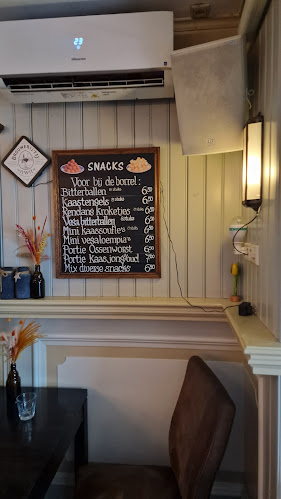 Hisense
23
SNACKS
Voor bij de borrel:
Bitterballen 8 stuks 6,50
Kaastengels 8 stuks 6,50
Rendang Kroketjes 8 stuks 6,50
Vega bitterballen 8 stuks 6,50
Mini kaassouflés 6,50
Mini vegaloempia's 6,50
Portie Ossenworst 6,50
Portie Kaas, jong/oud
Mix diverse snacks